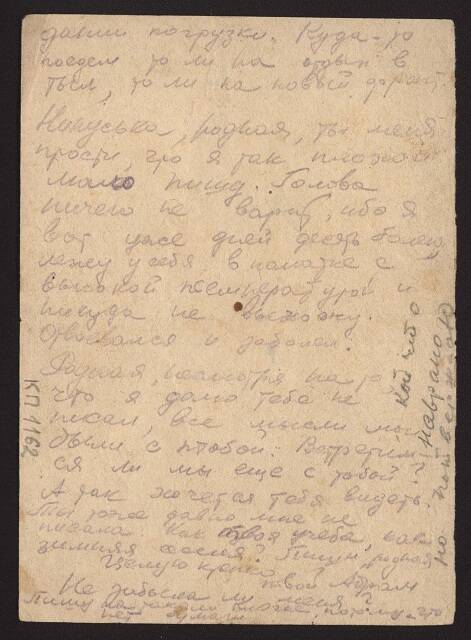 погрузки. Куда-то
поедем то ли на отдых в
тыл, то ли на новый фронт.
Нинуська, родная, ты меня
прости, что я так плохо и
мало пишу. Голова
ничего не варит, ибо я
вот уже дней десять болею,
лежу у себя в палатке с
высокой температурой и
никуда не выхожу.
и заболел.
Родная, несмотря на то
что я давно тебе не
писал, все мысли мои
были с тобой. Встретим-
ся ли мы еще с тобой?
А так хочется тебя видеть.
Ты тоже давно мне не
писала. Как твоя учеба, как
зимняя сессия? Пиши, родная
Целую крепко твой Абрам
Не забыла ли меня?
Пишу на такой потому что
нет бумаги
кой что
наврано
но
КП 1162